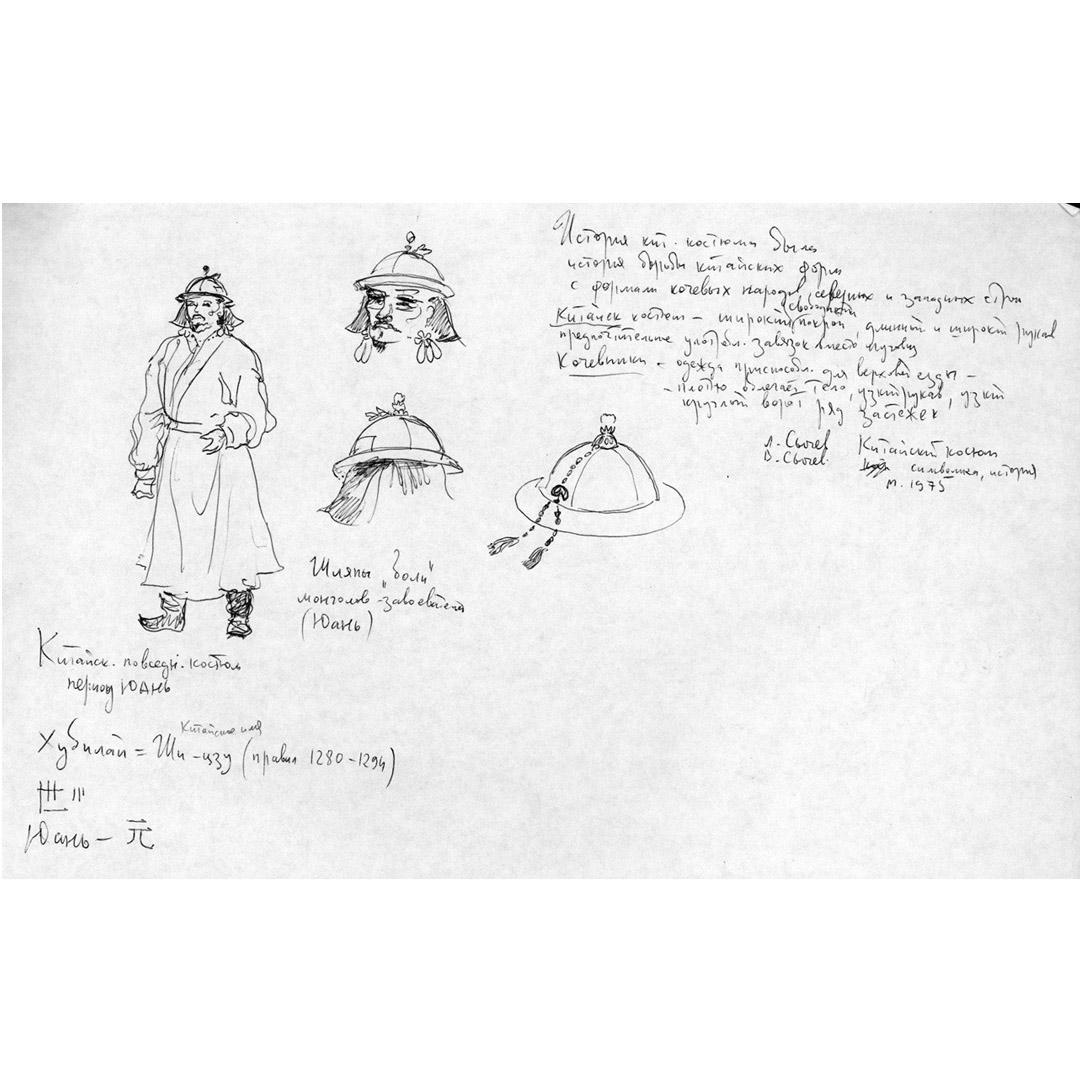 История кит. костюма была
история борьбы китайских форм
с формами кочевых народов северных и западных стран
Китайск костюм – широкий свободный покрой, длинный и широкий рукав
предпочтительное употребл. завязок вместо пуговиц
Кочевники – одежда приспособл. для верховой езды –
– плотно облегает тело, узкий рукав, узкий
круглый ворот ряд застежек
Л. Сычев
В. Сычев.
Китайский костюм
символика, история
М. 1975
Шляпы „Боли"
монголов-завоевателей
(Юань)
Китайск. повседн. костюм
период Юань
Китайское имя
Хубилай = Ши-цзу (правил 1280-1294)
世
Юань – 元